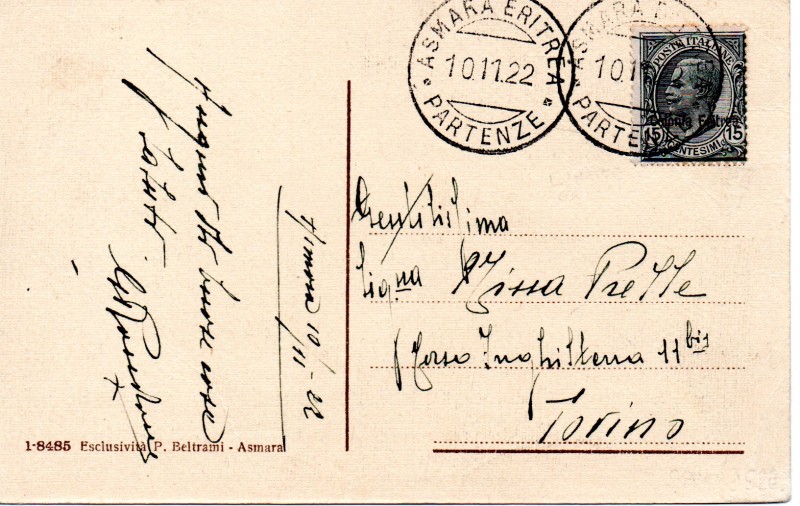 ASMARA ERITREA
10.11.22
PARTENZE
ASMARA E
10.1
PARTE
POSTE ITALIANE
Colonia Eritrea
15 15
CENTESIMI
Auguri di buone cose
e saluti
Asmara 10/11-22
Gentilissima
Signa Nissa Prette
Corso Inghilterra 11 bis
Torino
1-8485 Esclusività P. Beltrami - Asmara